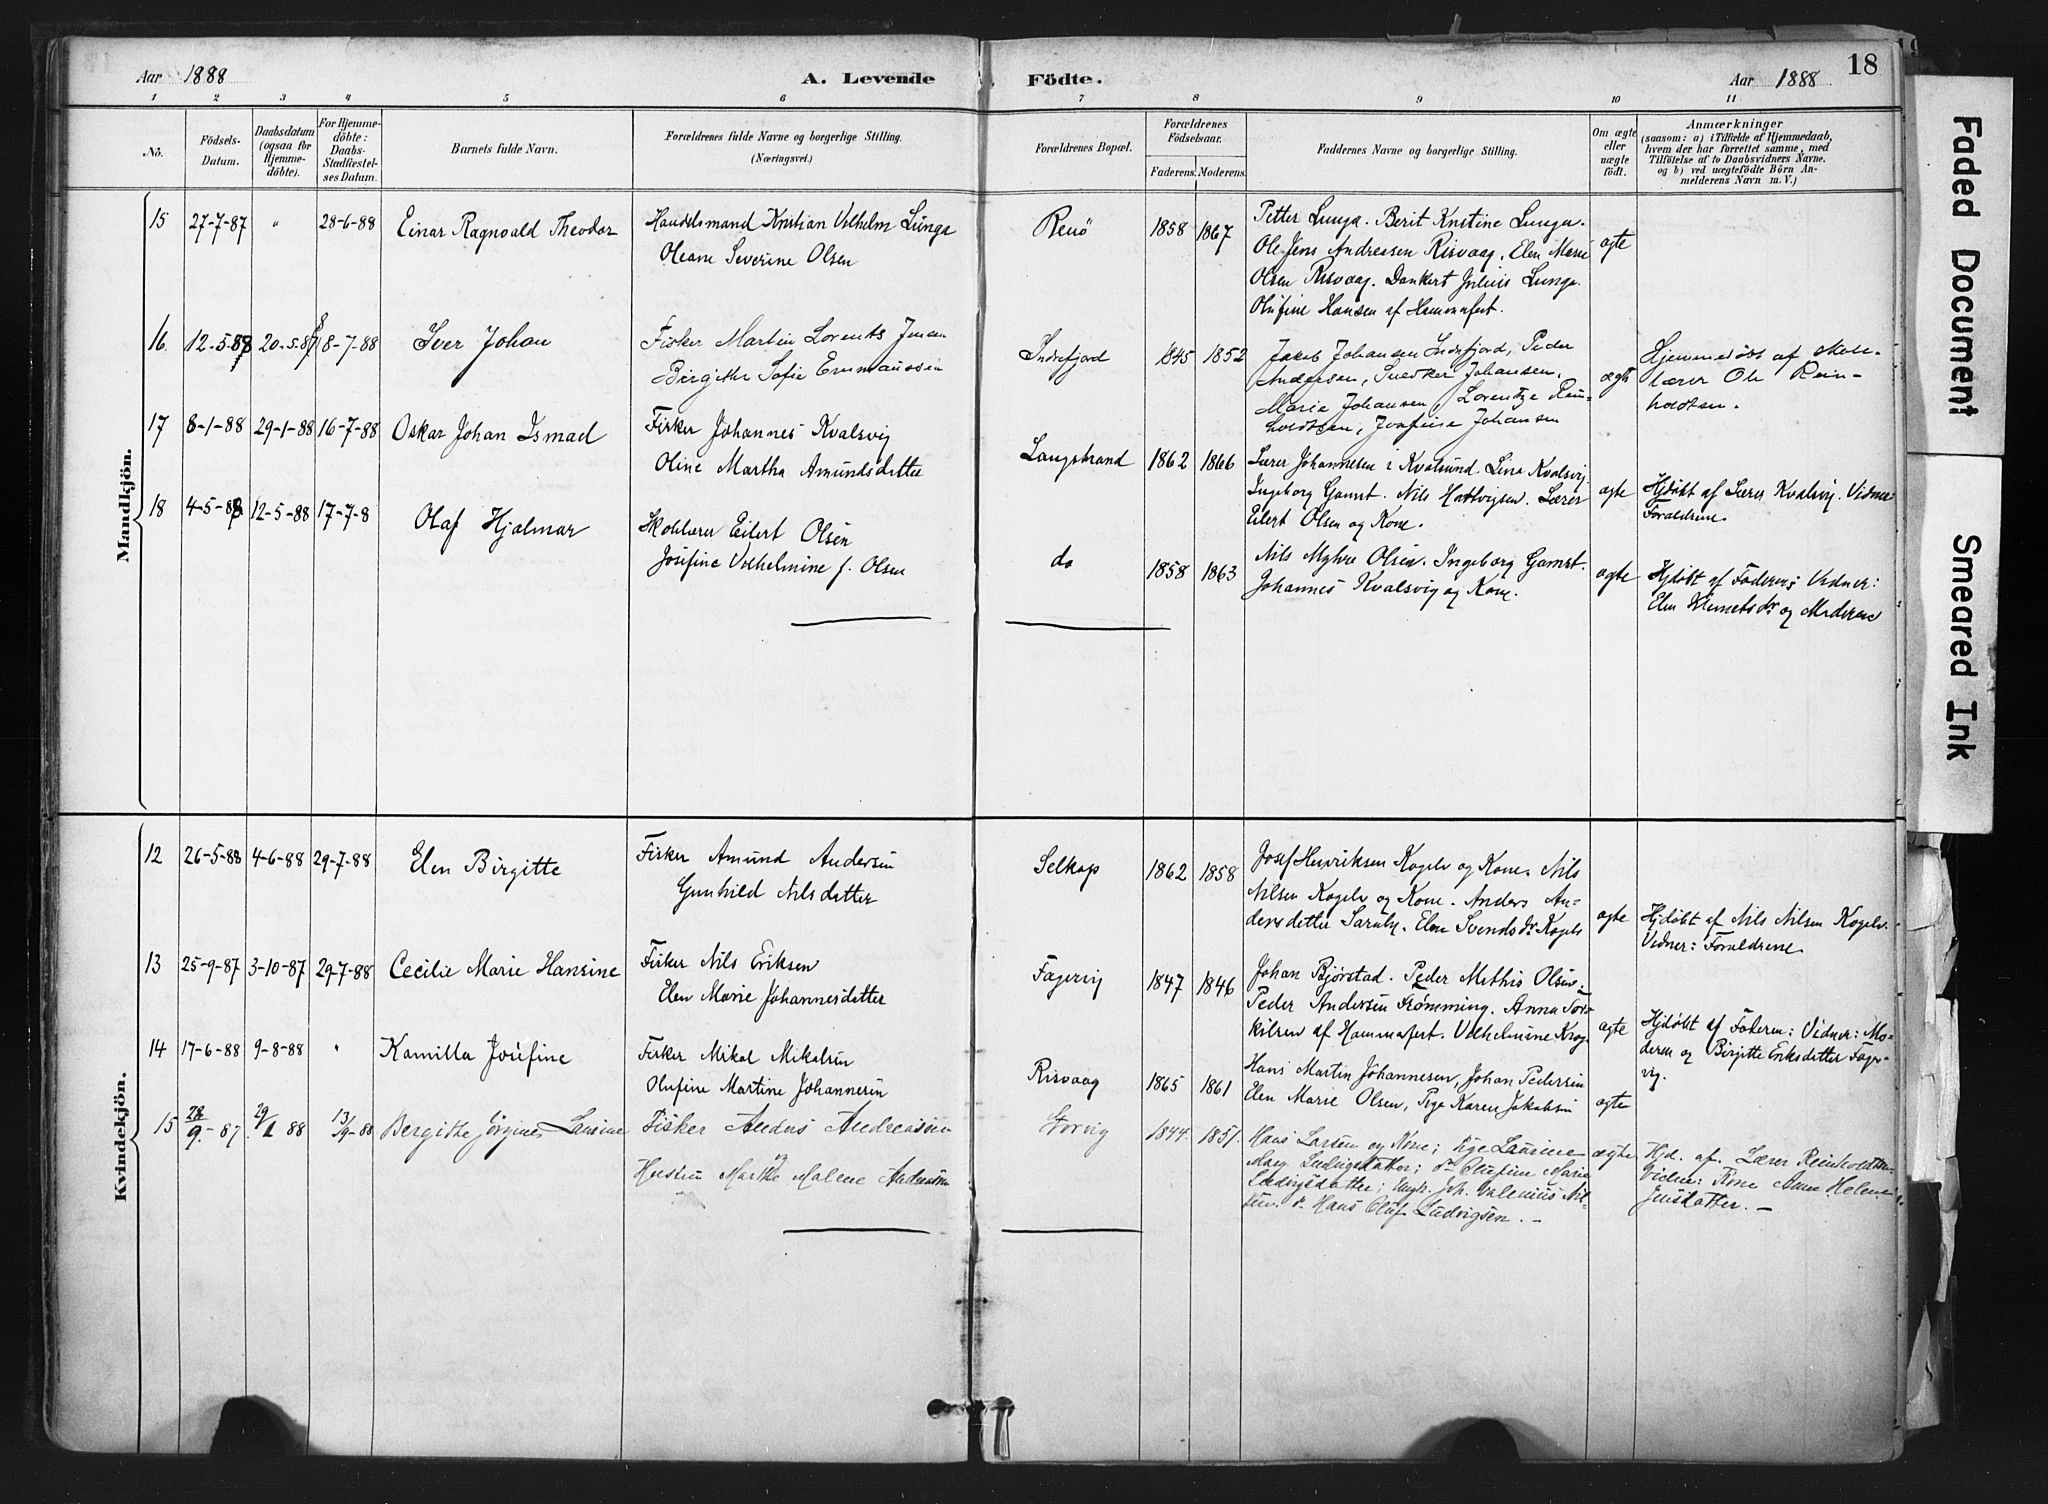 Aar 1888
A. Levende
Födte.
Aar 1888
18
1 2 3 4 5 6 7 8 9 10 11
No.
Födsels-
Datum.
Daabsdatum
(ogsaa for
Hjemme-
döbte).
For Hjemme-
döbte:
Daabs-
Stadfæstel-
ses Datum.
Barnets fulde Navn.
Forældrenes fulde Navne og borgerlige Stilling.
(Næringsvei.)
Forældrenes Bopæl.
Forældrenes
Födselsaar.
Faderens. Moderens.
Faddernes Navne og borgerlige Stilling.
Om ægte
eller
uægte
födt.
Anmærkninger
(saasom: a) i Tilfælde af Hjemmedaab,
hvem der har forrettet samme, med
Tilföielse af to Daabsvidners Navne.
og b) ved uægtefödte Börn An-
melderens Navn m. V.)
Mandkjön.
15 27-7-87 " 28-6-88 Einar Ragnvald Theodor
Handelsmand Kristian Vilhelm Lunga
Oleane Severine Olsen
Renö 1858 1867
Petter Lunga. Berit Kristine Lunga.
Ole Jens Andreasen Risvaag. Elen Marie
Olsen Risvaag. Dankert Julius Lunga.
Olufine Hansen af Hammerfest.
ægte
16. 12-5-87 20-5-87 8-7-88 Iver Johan
Fisker Martin Lorents Jensen
Birgithe Sofie Emmaussen
Indrefjord 1845 1852
Jakob Johansen Indrefjord, Peder
Andersen, Johansen,
Marie Johansen, Lorentze Rein-
holdtsen, Josefine Johansen
ægte
Hjemmedöbt af Skole-
lærer Ole Rein-
holdtsen.
17 8-1-88 29-1-88 16-7-88 Oskar Johan Ismael
Fisker Johannes Kvalsvig
Oline Martha Amundsdatter
Langstrand 1862 1866
Lærer Johannesen i Kvalsund. Lina Kvalsvig
Ingeborg Gamst. Nils Hattvigsen. Lærer
Eilert Olsen og Kone.
ægte
Hjdöbt af Lærer Kvalsvig. Vidner
Forældrene
18 4-5-88 12-5-88 17-7-8 Olaf Hjalmar
Skolelærer Eilert Olsen
Josefine Vilhelmine f. Olsen
do 1858 1863
Nils Myhre Olsen. Ingeborg Gamst.
Johannes Kvalsvig og Kone.
ægte
Hjdöbt af Faderen; Vidner:
Elen Klemetsdr og Moderen
Kvindekjön.
12 26-5-88 4-6-88 29-7-88 Elen Birgitte
Fisker Amund Andersen
Gunhild Nilsdatter
Selkop 1862 1858
Josef Henriksen Kogelv og Kone. Nils
Nilsen Kogelv og Kone. Anders An-
dersdatter Saraby. Elen Svendsdr Kogelv
ægte
Hjdöbt af Nils Nilsen Kogelv.
Vidner: Forældrene
13 25-9-87 3-10-87 29-7-88 Cecilie Marie Hansine
Fisker Nils Eriksen
Elen Marie Johannesdatter
Fagervig 1847 1846
Johan Bjørstad. Peder Mathis Olsen.
Peder Andersen Tromming. Anna Tor-
kilsen af Hammerfest. Vilhelmine Krog.
ægte
Hjdöbt af Faderen: Vidner: Mo-
deren og Birgitte Eriksdatter Fager-
vig.
14 17-6-88 9-8-88 " Kamilla Josefine
Fisker Mikal Mikalsen
Olufine Martine Johannesen
Risvaag 1865 1861
Hans Martin Johannesen, Johan Pedersen
Elen Marie Olsen, Pige Karen Jakobsen
ægte
15 28/9-87 29/1 88 13/9-88 Bergithe Jörgine Laurine
Fisker Anders Andreassen
Hustru Marthe og Malene Andreassen
Storvig 1844. 1851.
Hans Larsen og Kone; Pige Laurine
Marg. Ludvigsdatter; do Olufine Marie
Ludvigsdatter; Ungk. Joh. Valenius Nil-
sen. do Hans Oluf Ludvigsen. —
ægte
Hjd. af. Lærer Reinholdtsen.
Vidner: Kone Anne Helene
Jensdatter. —
Faded Document
Smeared Ink